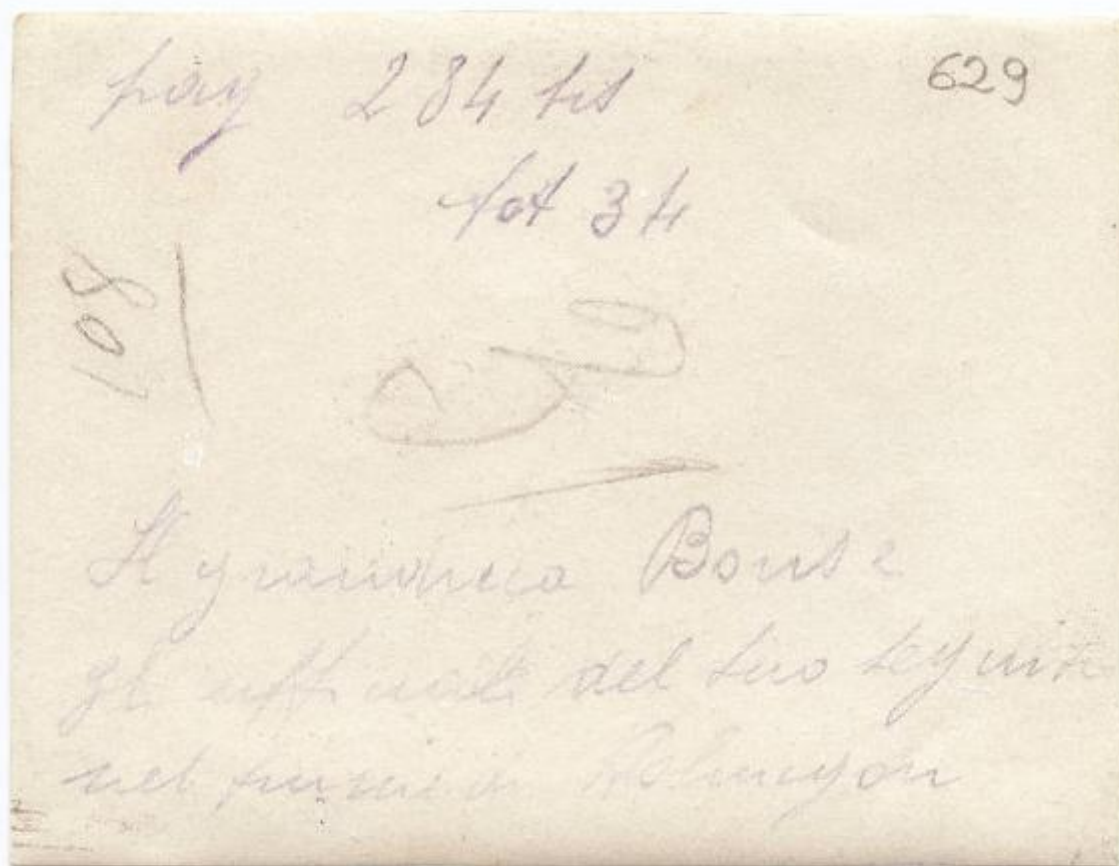 pag 284 bis
629
fot 34
108
Il granduca Boris e
gli ufficiali del suo seguito
nel